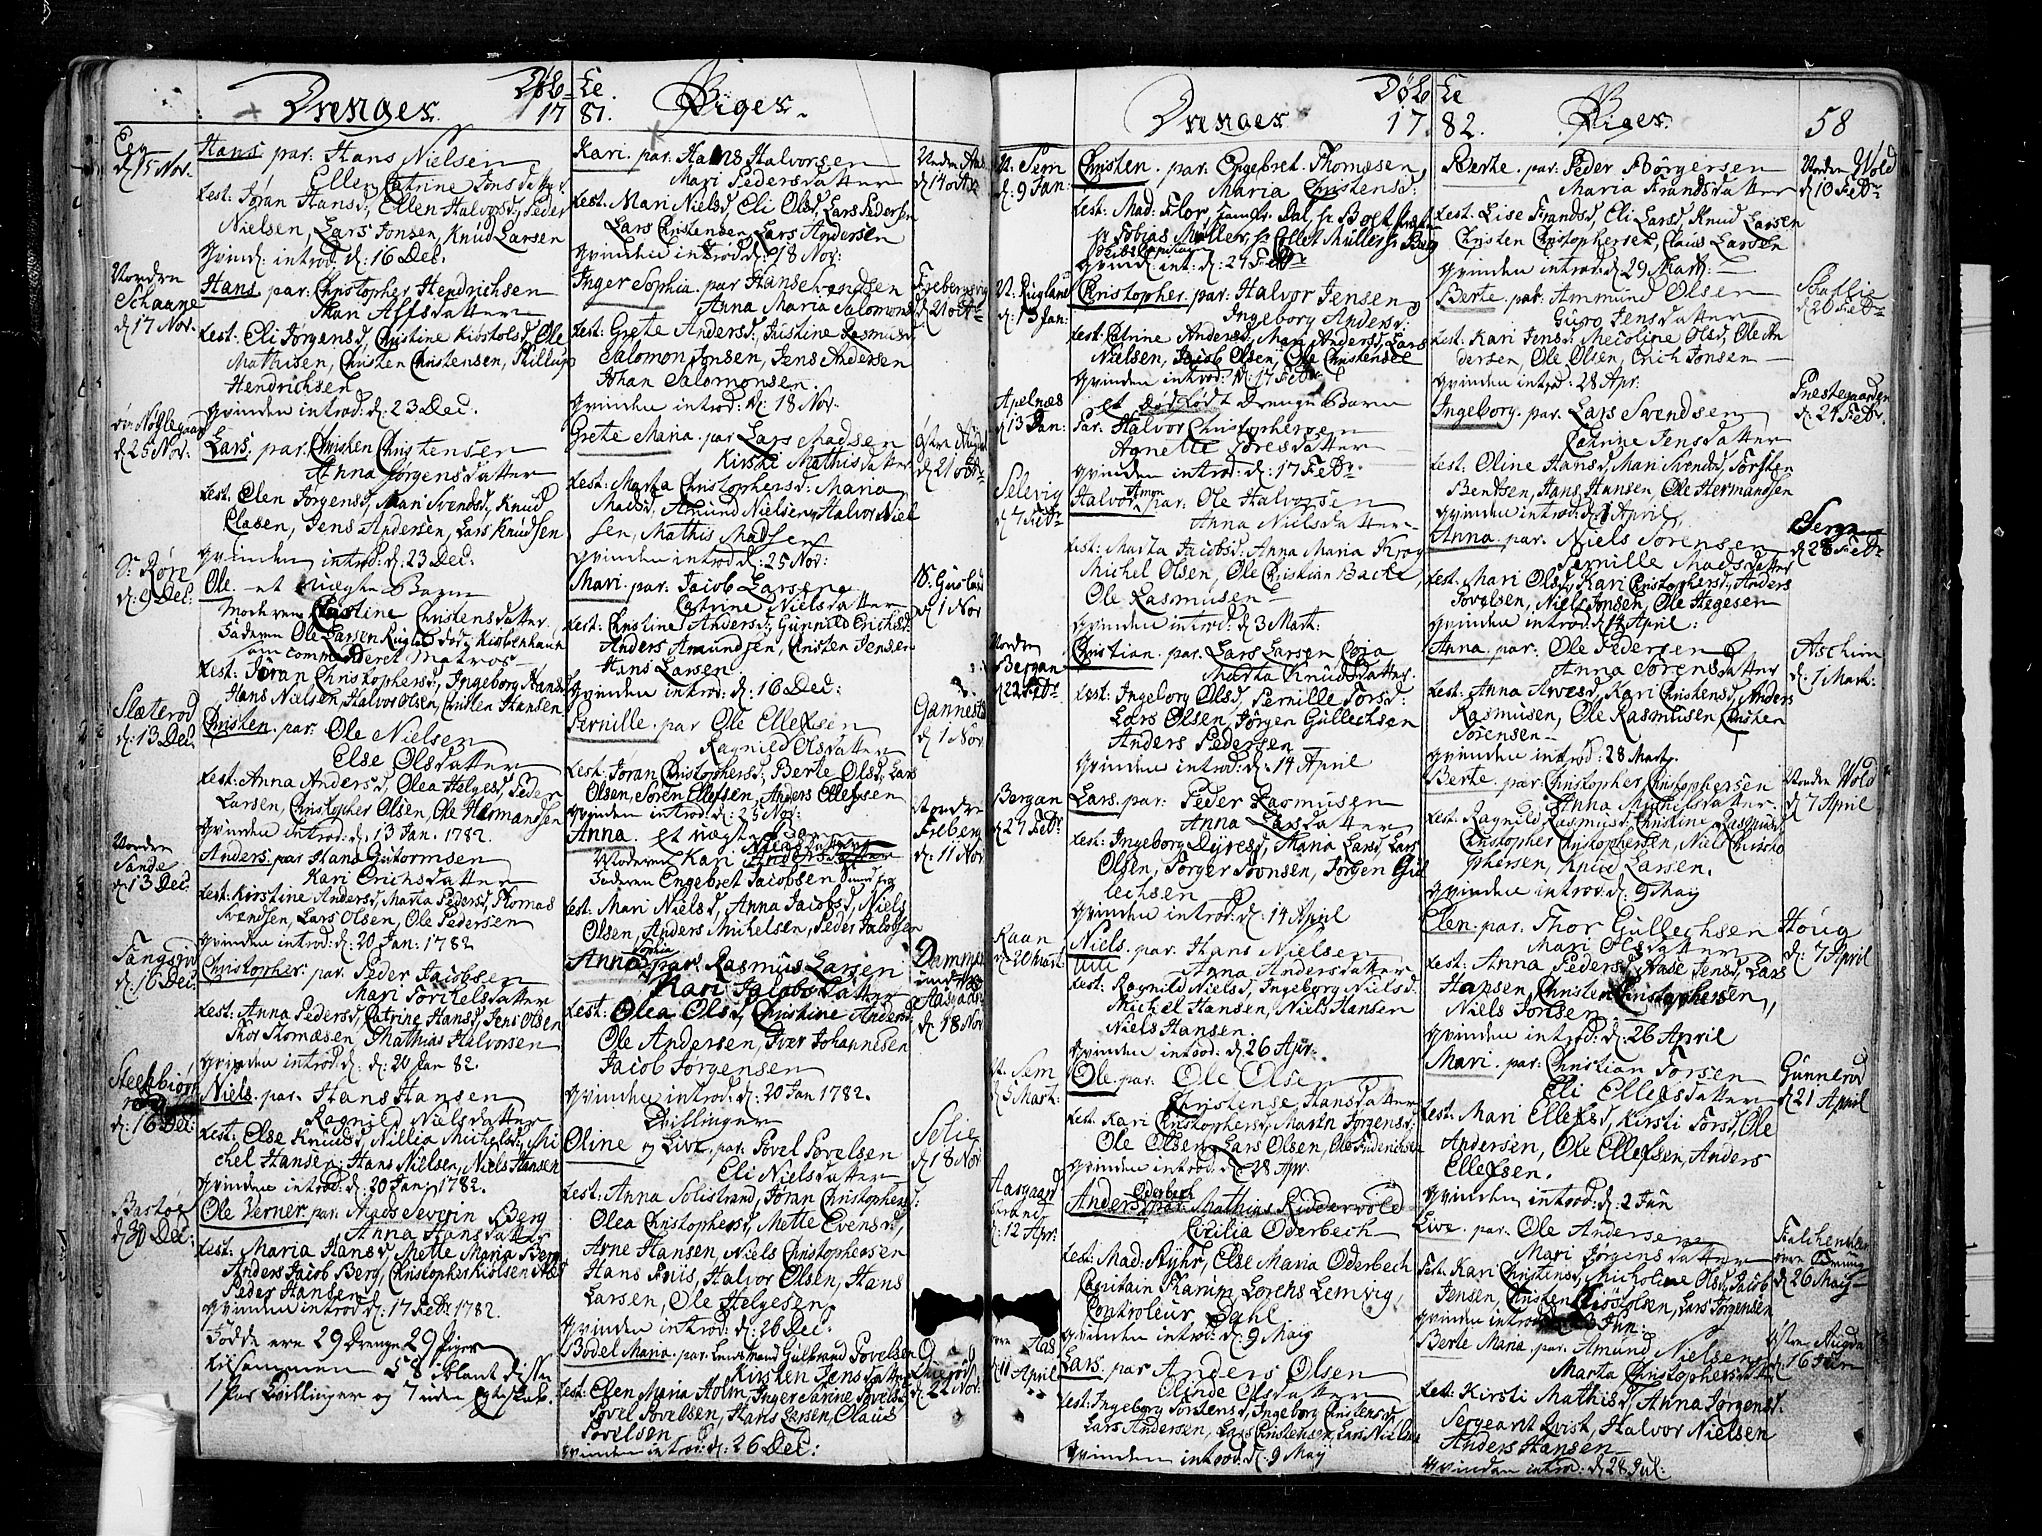 Døb
Drenges
17
Een
d. 15 Nov.
Hans. par: Hans Nielsen
Ellen Catrine Jensdatter
test: Jøran Hansd, Ellen Halvorsd, Peder
Nielsen, Lars Jonsen, Knud Larsen
Qvind: introd. d: 16 Dec.
Norden
Schaane
d. 17 Nov.
Hans. par: Christopher Hendrichsen
Mari Affsdatter
test: Eli Jørgensd, Christine Kiøstolsd, Ole
Mathisen, Christen Christensen, Phillip
Hendrichsen
Qvinden introd: d. 23 Dec.
d 25 Nov:
Lars. par. Christen Christensen
Anna Jørgensdatter
test: Elen Jørgensd, Mari Svendsd, Knud
Clasen, Jens Andersen, Lars Knudsen
Qvinden introd: d: 23 Dec:
S. Røre
d. 9 Dec:
Ole et uægte Barn
Moderen Christine Christensdatter
Faderen Ole Larsen
commanderet Matros
test: Jøran Christophersd, Ingeborg Hansd
Hans Nielsen, Halvor Olsen, Christen Hansen
Slæterød
d: 13 Dec.
Christen. par: Ole Nielsen
Else Olsdatter
test: Anna Andersd, Olea Helgesd, Peder
Larsen, Christopher Olsen, Ole Hermandsen
Qvinden introd: d: 13 Jan. 1782.
Norden
Sande
d. 13 Dec.
Anders. par Hans Guttormsen
Kari Erichsdatter
test: Kirstine Andersd, Marta Pedersd, Thomas
Svendsen, Lars Olsen, Ole Pedersen
Qvinden introd: d: 20 Jan: 1782.
d. 16 Dec.
Christopher. par. Peder Jacobsen
Mari Torkelsdatter
test: Anna Pedersd, Catrine Hansd, Jens Olsen
Thor Thomæsen, Mathias Halvorsen
Qvinden introd: d: 20 Jan 82.
d: 16 Dec:
Niels. par. Hans Hansen
Ragnild Nielsdatter
test: Else Knudsd, Nillia Michelsd, Mi
chel Hansen, Hans Nielsen, Niels Hansen
Qvinden introd: d: 20 Jan: 1782.
Bastøe
d. 30 Dec:
Ole Verner. par. Mads Severin Berg
Anna Hansdatter
test: Maria Hansd, Mette Maria Berg
Anders Jacob Berg, Christopher
Peder Hansen
Qvinden introd: d: 17 Febr 1782.
Fødde ere 29 Drenge 29 Piger
tilsammen 58 iblant disse
1 Par Tvillinger og 7 uden Egteskab.
te
87. Piger.
Kari. par. Hans Halvorsen
Mari Pedersdatter
d 14 Oct
test: Mari Nielsd, Eli Olsd, Lars Pedersen
Lars Christensen, Lars Andersen
Qvinden introd: d: 18 Nov:
Inger Sophia. par Hans
Anna Maria Salomonsd
d 21 Octr
test: Grete Andersd, Justine Rasmusd,
Salomon Jonsen, Jens Andersen
Johan Salomonsen.
Qvinden introd: d: 18 Nov.
Grete Maria. par Lars Madsen
Kirsti Mathisdatter
d. 21 Octr
test: Marta Christophersd: Maria
Madsd, Amund Nielsen, Halvor Niel
sen, Mathis Madsen
Qvinden introd d: 25 Nov:
Mari. par: Jacob Larsen
Catrine Nielsdatter
d. 1 Nov
test: Christine Andersd, Gunnild Erichsd:
Anders Amundsen, Christen Jensen
Hans Larsen.
Qvinden introd: d: 16 Dec:
Pernille. par Ole Ellefsen
Ragnild Olsdatter
Gannestd
d. 1 Nov.
test: Jøran Christophersd, Berte Olsd, Lars
Olsen, Søren Ellefsen, Anders Ellefsen
Qvinden introd: d: 25 Nov:
Anna. et uægte Barn
Moderen Kari Nielsdatter
Faderen Engebret Jacobsen
Norden
Freberg
d. 11 Nov
test: Mari Nielsd, Anna Jacobsd, Niels
Olsen, Anders Michelsen, Peder Jacobsen
Anna Sophia par. Rasmus Larsen
Kari Jacobsdatter
d: 18 Nov
test. Olea Olsd, Christine Andersd
Ole Andersen, Iver Johannesen
Jacob Jørgensen
Qvinden introd: d: 20 Jan 1782.
Tvillinger
Oline og Live. par. Povel Povelsen
Eli Nielsdatter
Solie
d. 18 Nov
test: Anna Solistrand, Jøran Christophersd:
Olea Christophersd, Mette Evensd,
Arne Hansen, Niels Christophersen
Hans Friis, Halvor Olsen, Hans
Larsen, Ole Helgesen,
Qvinden introd: d: 26 Dec:
Bodel Maria. par. Gulbrand Povelsen
Kirsten Jensdatter
d: 22 Nov.
test: Elen Maria Holm, Inger Sarine Povelsd
Povel Povelsen, Hans Larsen, Claus
Povelsen
Qvinden introd: d: 26 Dec:
Døb
Drenges
17
N. Sem
d: 9 Jan:
Christen. par. Engebret Thomæsen
Maria Christensd:
test: Mad: Flor, Jomfr. Dal, hr Boet
hr Tobias Møller, hr Collet Müller, hr Berg
Qvind: int: d: 27 Febr
d: 13 Jan:
Christopher. par: Halvor Jensen
Ingeborg Andersd:
test: Catrine Andersd, Mari Andersd, Lars
Nielsen, Jacob Olsen, Ole Christensen
Qvinden introd: d: 17 Febr:
Apelnæs
d 13 Jan:
et dødfødt Drenge Barn
Par. Halvor Christophersen
Agnette Toresdatter
Qvinden introd: d: 17 Febr.
Selevig
d 7 Febr
Halvor Amon par: Ole Halvorsen
Anna Nielsdatter
test: Marta Jacobsd: Anna Maria Krog
Michel Olsen, Ole Christian Bache,
Ole Rasmusen
Qvinden introd: d 3 Mart:
Norden
Bergan
d 22 Febr
Christian. par. Lars Larsen Coja
Marta Knudsdatter.
test: Ingeborg Olsd, Pernille Torsd:
Lars Olsen, Jørgen Gullechsen
Anders Pedersen
Qvinden introd: d: 14 April
Bergan
d 27 Febr.
Lars. par: Peder Rasmusen
Anna Larsdatter
test: Ingeborg Dyresd, Maria Larsd, Lars
Olsen, Torger Joonsen, Jørgen Gul
lechsen
Qvinden introd: d: 14 April
Raan
d: 20 Mart
Niels. par: Hans Nielsen
Anna Andersdatter
test: Ragnild Nielsd, Ingeborg Nielsd:
Michel Hansen, Niels Hansen
Niels Hansen.
Qvinden introd: d. 26 Apr:
N. Sem
d. 5 Mart:
Ole. par: Ole Olsen
Christense Hansdatter
test: Kari Christophersd, Martn Jørgensd:
Ole Olsen, Lars Olsen, Ole Friderichsen
Qvinden introd: d: 28 Apr.
Aasgaard
strand
d: 12 Apr.
Anders Oderbech par: Mathias Riddervold
Cicilia Oderbech
test: Mad: Kyhr, Else Maria Oderbech
Capitain Lorens Lemvig,
Controleur Dahl
Qvinden introd: d: 9 Maij
Aas
d: 11 April
Lars. par Anders Olsen
Olinde Olsdatter
test: Ingeborg, Ingeborg Christensd,
Lars Andersen, Lars Christensen, Lars Nielsen
Qvinden introd: d: 9 Maij
te
82. Piger.
58
Berte. par: Peder Børgersen
Maria Frandsdatter
Norden Wold
d 10 Febr
test. Lise Frandsd, Eli Larsd, Knud Larsen
Christen Christophersen, Claus Larsen
Qvinden introd: d 29 Mart:
Berte. par: Ammund Olsen
Guro Jensdatter
d 20 Febr
test: Kari Jensd: Nicoline Olsd, Ole An
dersen, Ole Olsen, Erich Jonsen
Qvinden introd: 28 Apr:
Ingeborg. par. Lars Svendsen
Catrine Jensdatter
Prestegaarden
d: 27 Febr.
test: Oline Hansd, Mari Svendsd, Torsten
Bentsen, Hans Hansen, Ole Hermandsen
Qvinden introd: d: 1 April
Anna. par. Niels Sørensen
Pernille Madsdatter
d 28 Febr
test: Mari Olsd, Kari Christophersd, Anders
Povelsen, Niels Jonsen, Ole Hegesen
Qvinden introd: d 14 April:
Anna. par: Ole Pedersen
Anna Sørensdatter
Aschim
d: 1 Mart:
test: Anna Arvesd, Kari Christensd, Anders
Rasmusen, Ole Rasmusen, Christen
Sørensen
Qvinden introd: 28 Mart
Berte. par Christopher Christophersen
Anna Michelsdatter
Norden Wold
d 7 April
test. Ragnild Rasmusd, Christine Rasmusd
Christopher Christophersen, Niels Christo
phersen, Knud Larsen.
Qvinden introd: d: 9 Maij
Elen. par. Thor Gullechsen
Mari Olsdatter
Houg
d: 7 April
test: Anna Pedersd, Aase Jensd, Lars
Hansen, Christen Christophersen,
Niels Jonsen
Qvinden introd: d: 26 April
Mari. par: Christian Torsen
Eli Ellefsdatter
Gunnerød
d 21 April
test: Mari Ellefsd, Kirsti Torsd, Ole
Andersen, Ole Ellefsen, Anders
Ellefsen.
Qvinden introd: d: 2 Jun
Live. par. Ole Andersen
Mari Jørgensdatter
d 26 Maij
test. Kari Christensd, Nicholine Olsd, Jacob
Jensen, Christen Kiøstolsen, Lars Jørgensen
Qvinden introd Jun:
Berte Maria. par. Amund Nielsen
Marta Christophersdatter
d. 16
test: Kirsti Mathisd, Anna Jørgensd.
Sergeant Qvist, Halvor Nielsen
Anders Hansen
Qvinden introd: d: 28 Jul: